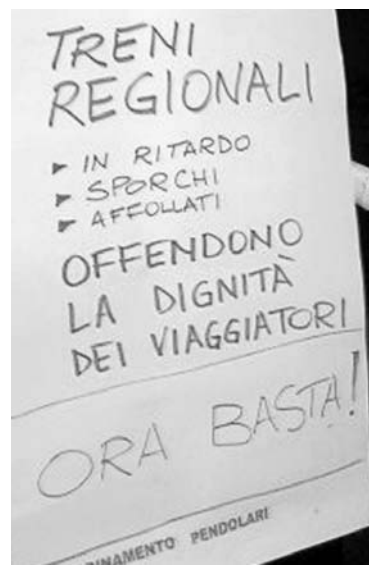 TRENI
REGIONALI
► IN RITARDO
► SPORCHI
► AFFOLLATI
OFFENDONO
LA DIGNITÀ
DEI VIAGGIATORI
ORA BASTA!
DINAMENTO PENDOLARI